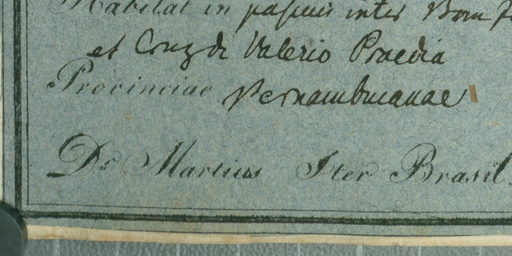 Habitat in pascuis inter Bom
et Cruz de Valerio Praedia
Provinciae Pernambucanae
Dr. Martius Iter Brasil.